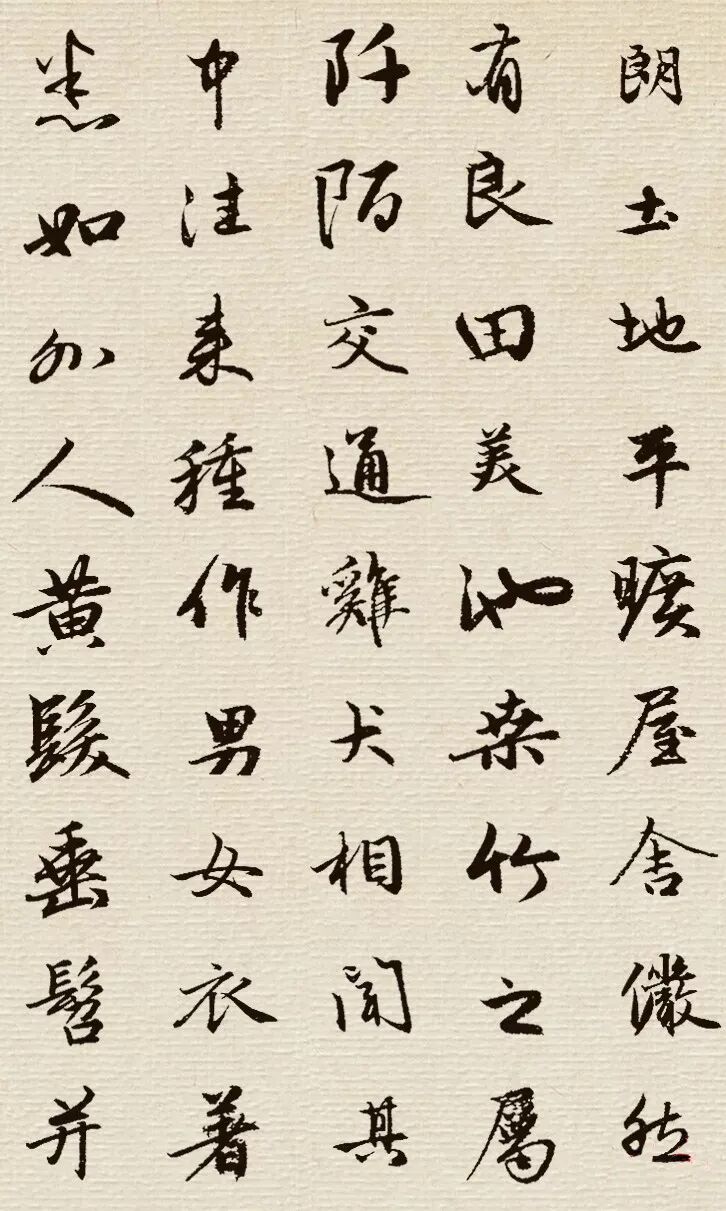 朗土地平曠屋舍儼然
有良田美池桑竹之屬
阡陌交通雞犬相聞其
中往来種作男女衣著
悉如外人黄髮垂髫并